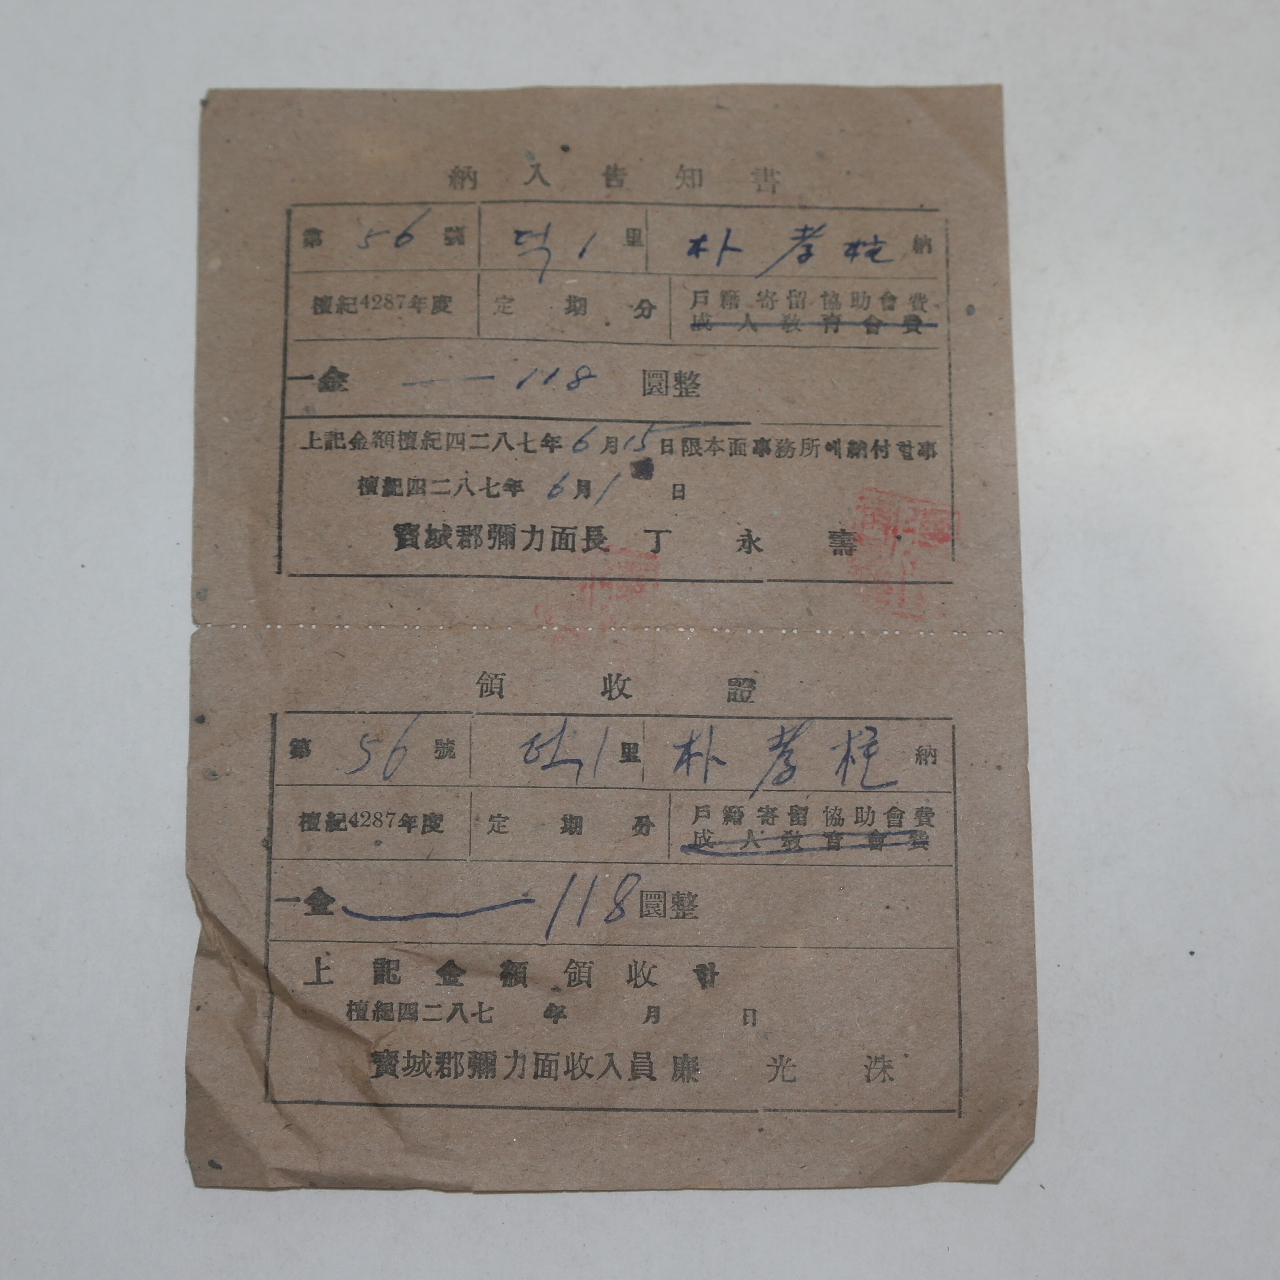 納入告知書
第 56 號 덕1里 朴孝柱 納
檀紀4287年度 定期分 戶籍寄留協助會費
成人敎育會費
一金 118 圜整
上記金額檀紀四二八七年6月15日限本面事務所에納付할事
檀紀四二八七年 6月1日
寶城郡彌力面長 丁永壽
領收證
第 56 號 덕1里 朴孝柱 納
檀紀4287年度 定期分 戶籍寄留協助會費
成人敎育會費
一金 118圜整
上記金額領收함
檀紀四二八七年 月 日
寶城郡彌力面收入員 廉光洙